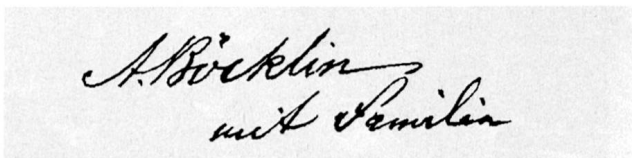 A. Böcklin
mit Familie